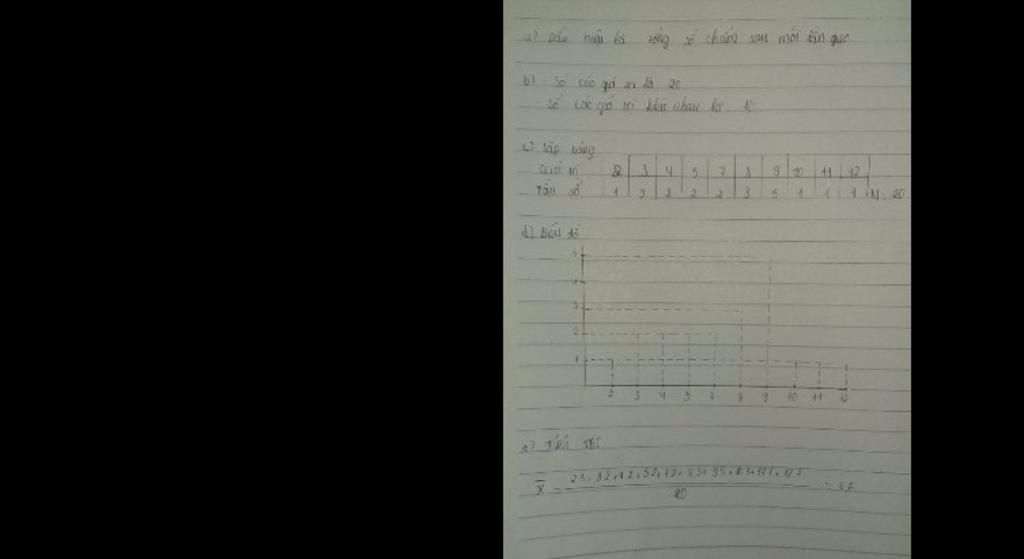 a) Dấu hiệu là tổng số chấm sau mỗi lần gieo
b) - Số các giá trị là 20
- Số các giá trị khác nhau là: 10
c) Lập bảng
Giá trị 2 3 4 5 7 8 9 10 11 12
Tần số 1 2 2 2 2 3 5 1 1 1 N=20
d) Biểu đồ
5
4
3
2
1
2 3 4 5 7 8 9 10 11 12
e)
X̄ =
20